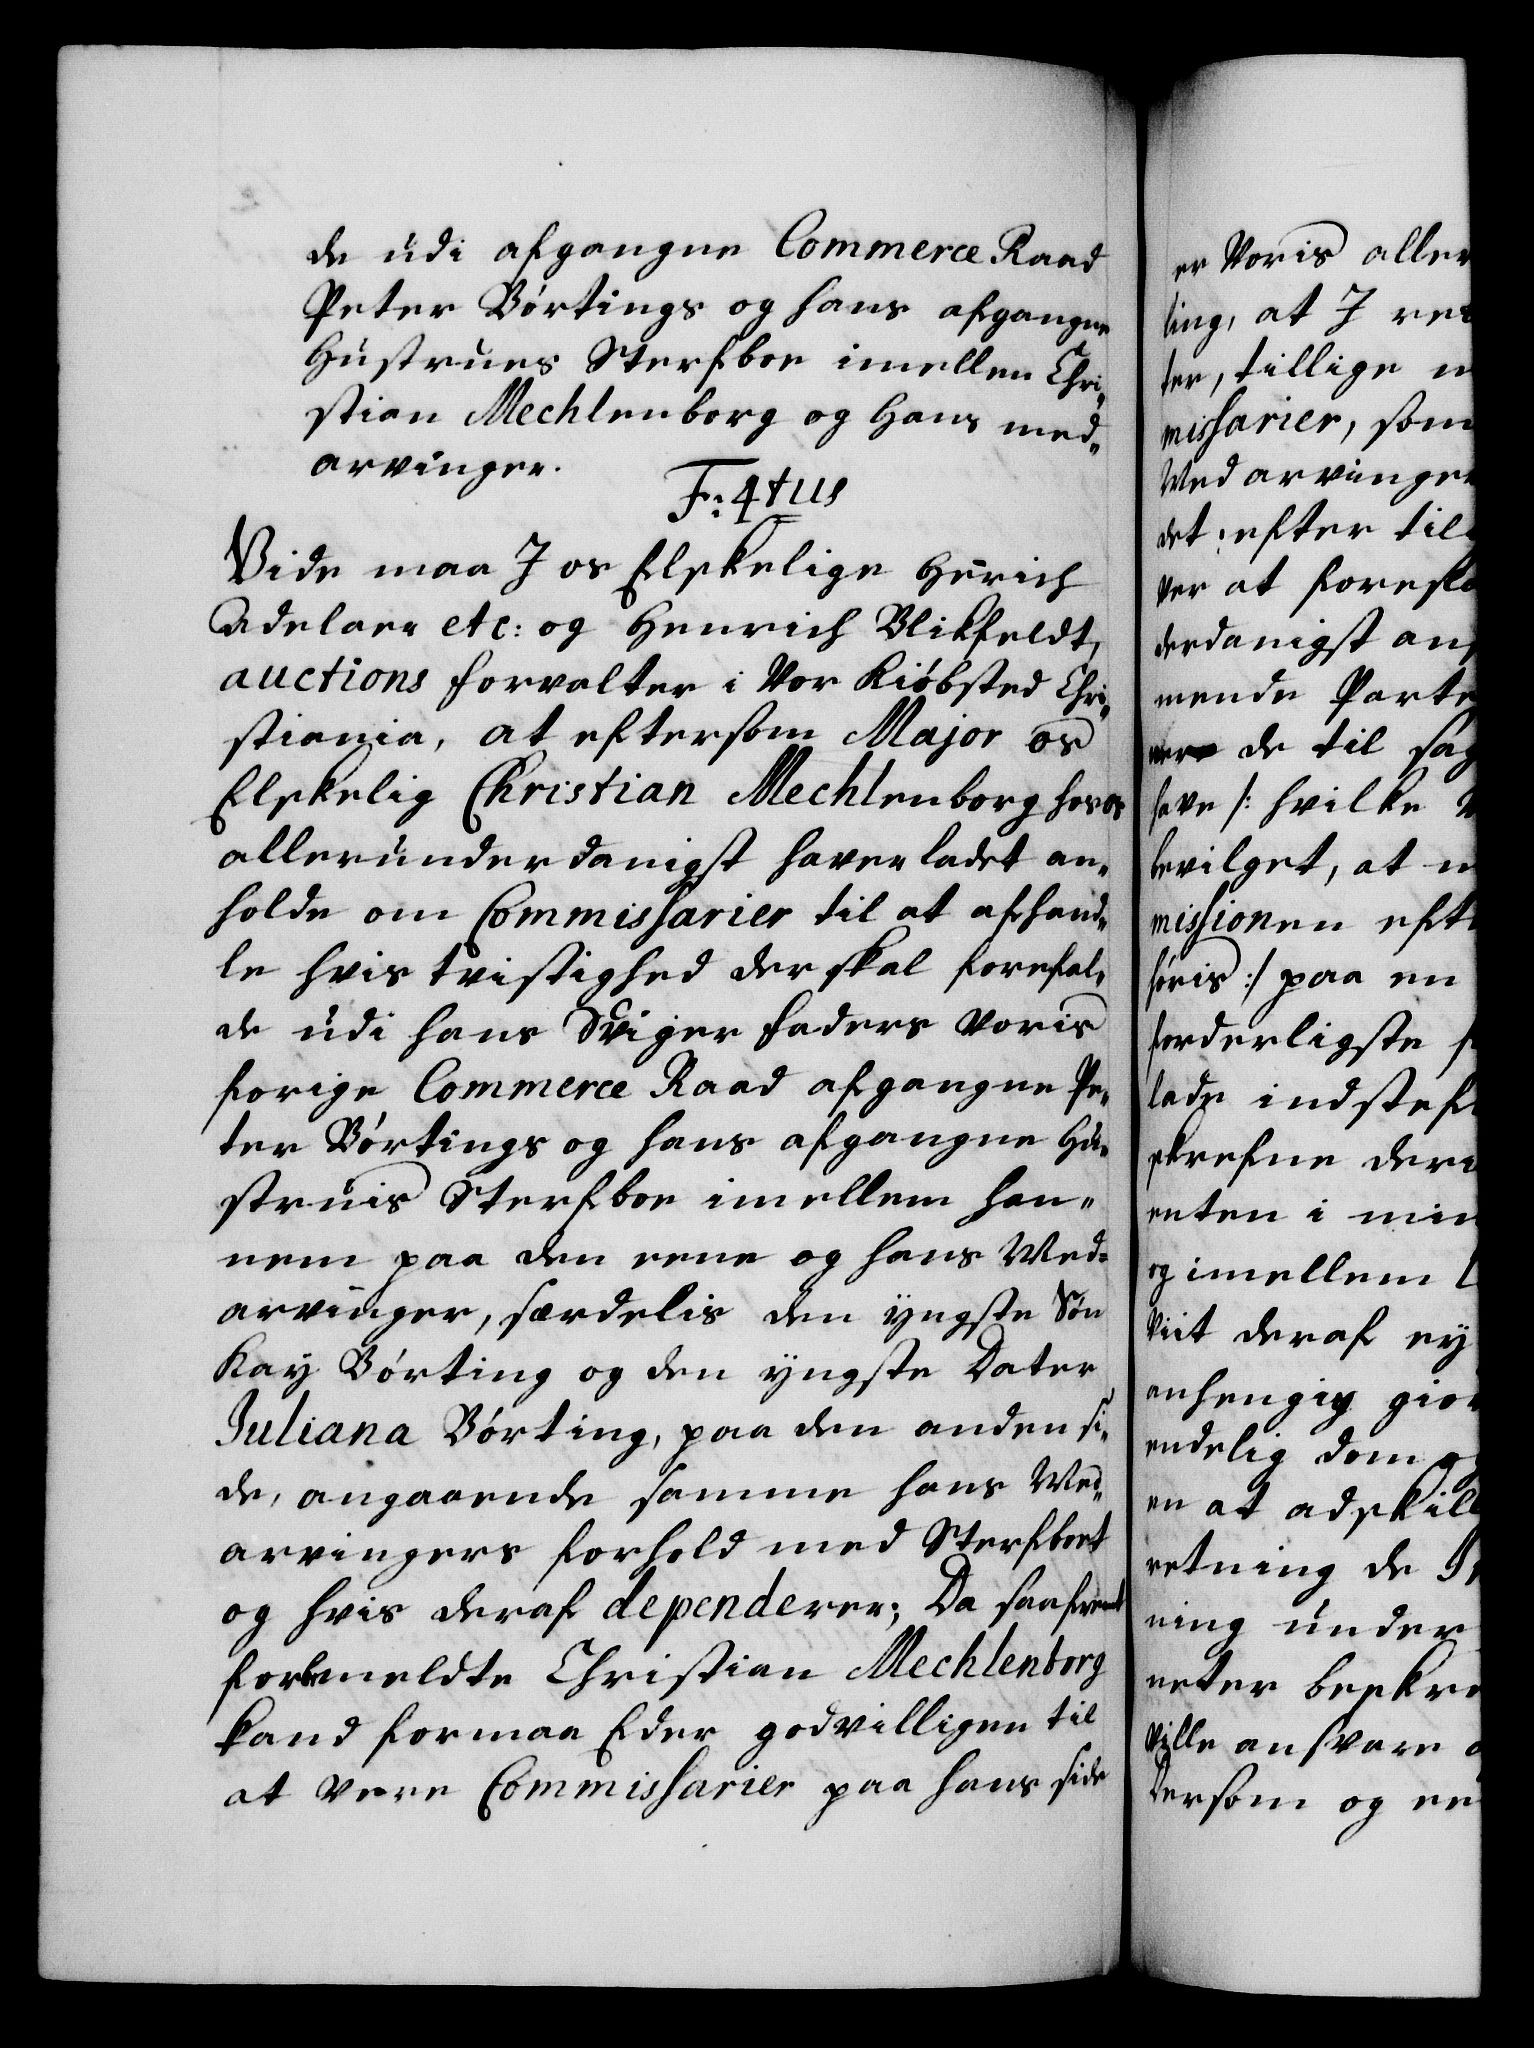 de udi afgangne Commerce Raad
Peter Börtings og hans afgangne
Hustrues Sterfboe imellen Chri„
stian Mechlenborg og Hans med„
arvinger.
F: 4tus
Vide maa I os Elskelige Henrich
Adelaer etc: og Henrich Blikfeldt,
auctions forvalter i Vor Kiöbsted Chri„
stiania, at eftersom Major os
Elskelig Christian Mechlenborg hos os
allerunderdanigst haver ladet an„
holde om Commissarier til at afhand„
le hvis tvistighed der skal forefal„
de udi hans Sviger faders voris
forige Commerce Raad afgangne Pe„
ter Börtings og hans afgangne Hu„
struis Sterfboe imellem han„
nem paa den eene og hans Med„
arvinger, særdelis den yngste Sön
Kay Börting og den yngste Dater
Juliana Börting, paa den anden si„
de, angaaende samme hans Med„
arvingers forhold med Sterfboet
og hvis deraf dependerer; Da saafremt
formeldte Christian Mechlenborg
kand formaa Eder godvilligen til
at vere Commissarier paa hans side
er Voris aller
ling, at I ret
ter, tillige m
missarier, som
Medarvinger
det, efter til
ver at foresla
derdanigst an
mende Parte
de til sag
have /: hvilke
bevilget, at
missionen eft
höris :/ paa en
forderligste
lade indstef
skrefne der
enten i min
og imellem
viit deraf ey
anhengig giör
endelig dom og
en at adskill
retning de
ning under
neter beskre
ville ansvare
Dersom og en